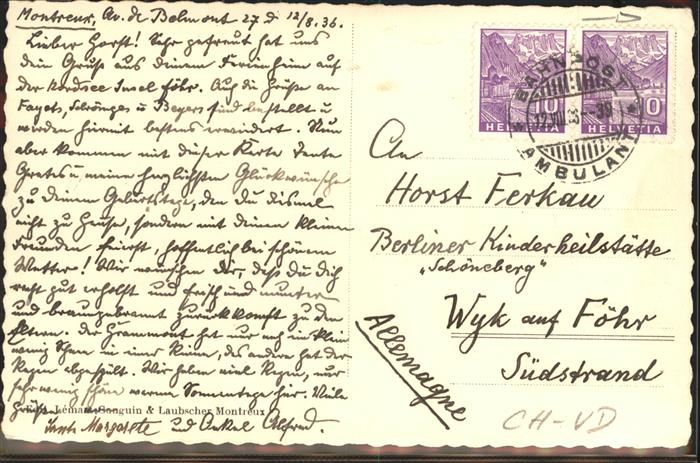 Montreux, Av. de Belmont 27. d. 12/8. 36.
Lieber Horst! Sehr gefreut hat uns
dein Gruss aus deinem Ferienheim auf
der Nordsee Insel Föhr. Auch die Grüsse an
Fayots, Schönges u Beyers sind bestellt u
werden hiermit bestens erwidert. Nun
aber kommen mit dieser Karte Tante
Gretes u. meine herzlichsten Glückwünsche
zu deinem Geburtstage, den du diesmal
nicht zu Hause, sondern mit deinen kleinen
Freunden feierst, hoffentlich bei schönem
Wetter! Wir wünschen dir, dass du dich
recht gut erholst und frisch und munter
und braungebrannt zurückkommst zu den
Eltern. Der Grammont hat nur noch ein klein
wenig Schnee in einer Rinne, das andere hat der
Regen abgespült. Wir haben viel Regen, nur
sehr wenig schöne warme Sonnentage hier. Viele
Grüsse
Tante Margarete und Onkel Alfred.
Léman, Songuin & Laubscher Montreux
10 HELVETIA
10 HELVETIA
BAHNPOST
12.VIII.36
AMBULANT
An
Horst Ferkau
Berliner Kinderheilstätte
„Schöneberg"
Wyk auf Föhr
Südstrand
Allemagne
CH-VD